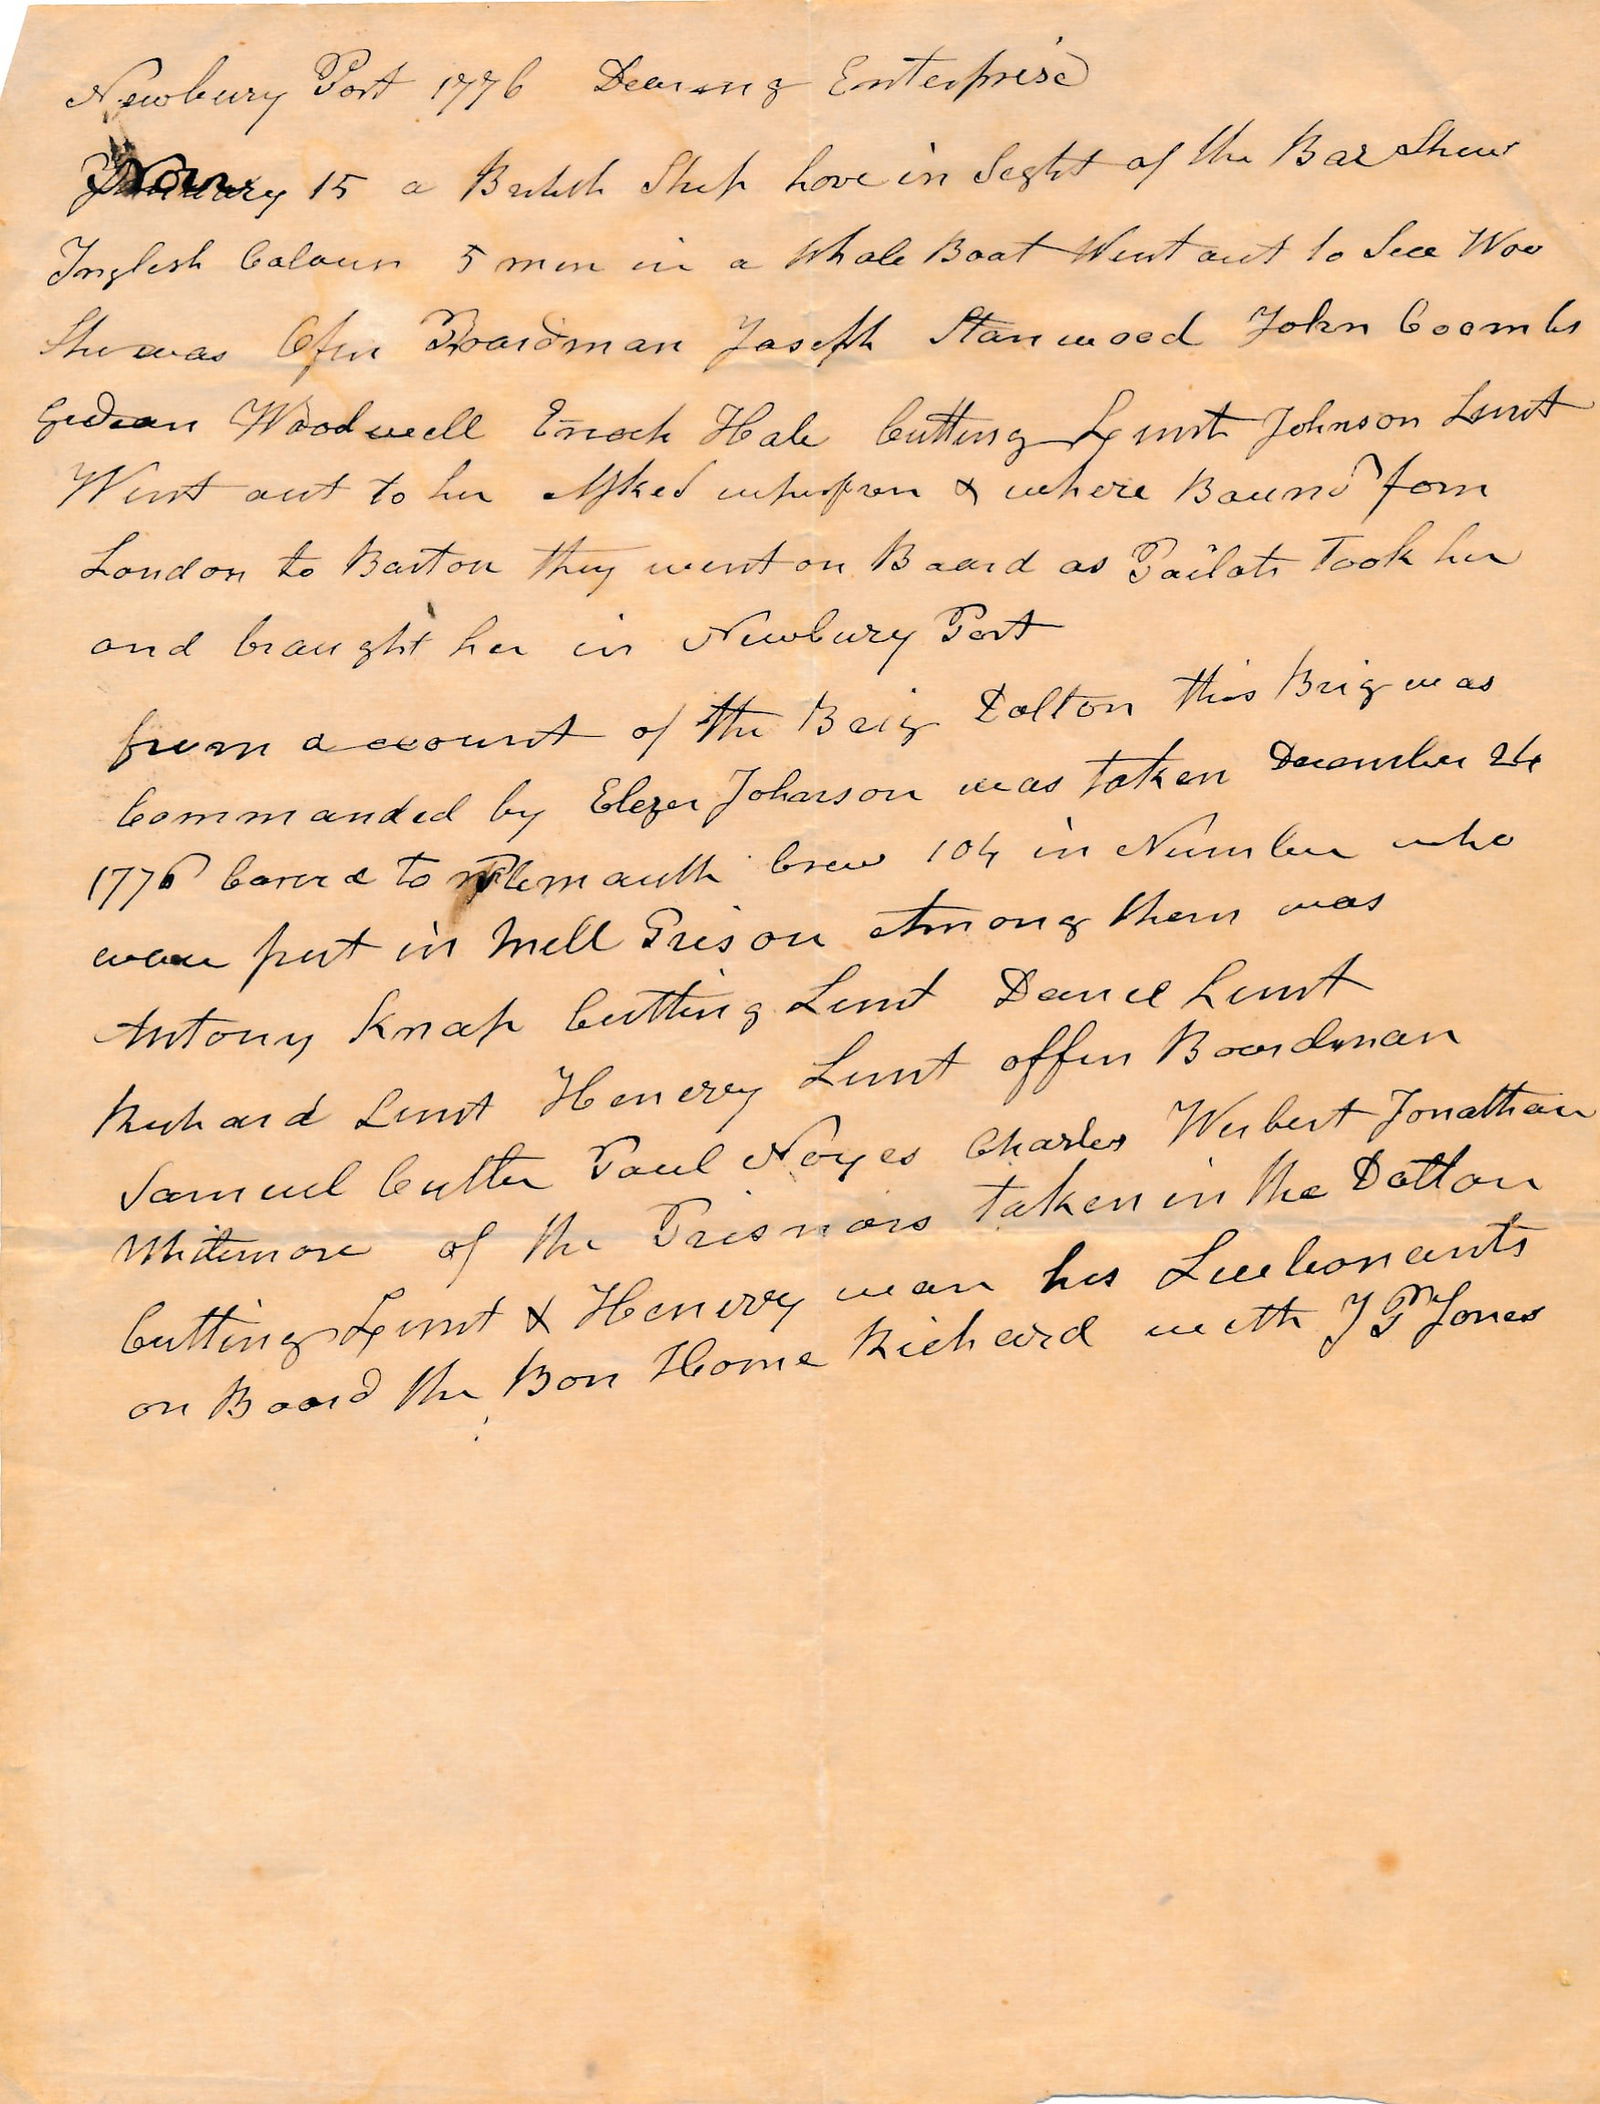 Newbury Port 1776 Dearing Enterprise
January 15 a British Ship hove in Sight of the Bar Shew
Inglesh Colours 5 men in a Whale Boat Went out to See Woo
She was Ofin Boardman Joseph Stanwood John Coombs
Gidean Woodwell Enoch Hale Cutting Lunt Johnson Lunt
Went out to her Asked & where Bound fom
London to Boston they went on Board as Pailots Took her
and braught her in Newbury Port
from account of the Brig Dolton this Brig was
Commanded by Elezer Johnson was taken December 24
1776 Carred to Plemouth Crew 104 in Number who
ware put in Mill Prison Among them was
Antony Knap Cutting Lunt Daniel Lunt
Richard Lunt Henerry Lunt offin Boardman
Samuel Cutter Paul Noyes Charles Herbert Jonathan
Whitemore of the Prisnors taken in the Dolton
Cutting Lunt & Henerry ware his Lieutonants
on Board the Bon Home Richard with J P Jones